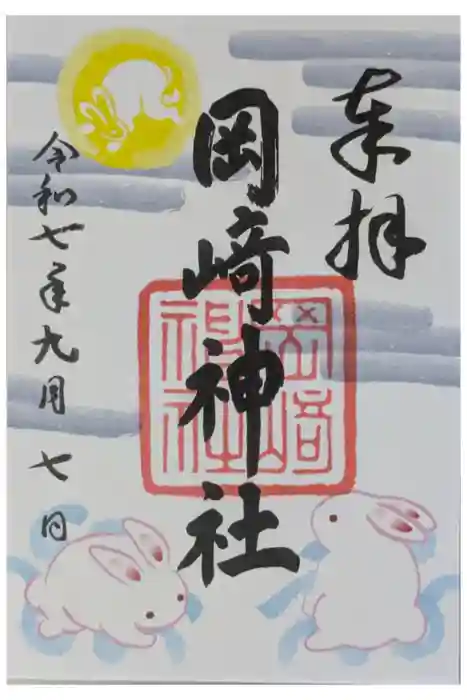 奉拝
岡崎神社
岡崎
神社
令和七年九月七日